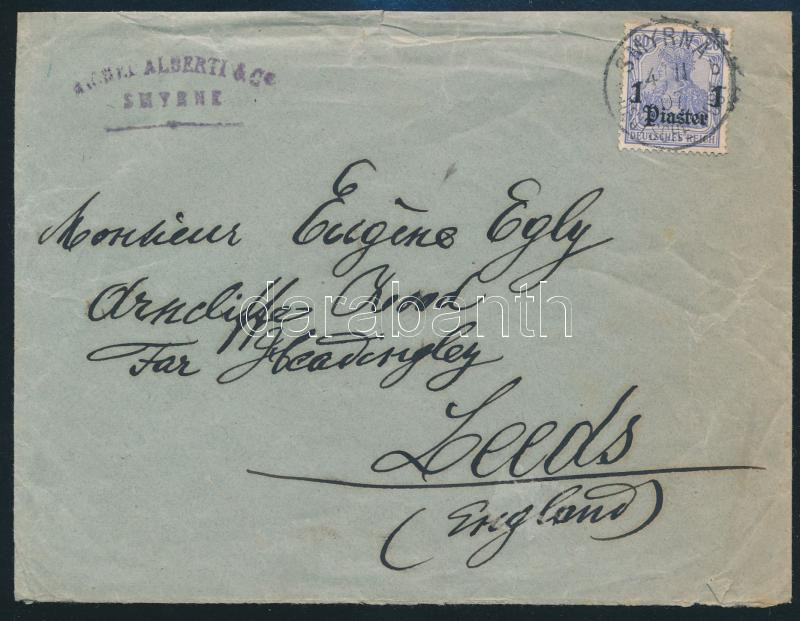 ALBERTI & Co
SMYRNE
SMYRNA
1 1
Piaster
DEUTSCHES REICH
Monsieur Eugène Egly
Arncliffe Road
Far Headingley
Leeds
(England)
darabanth